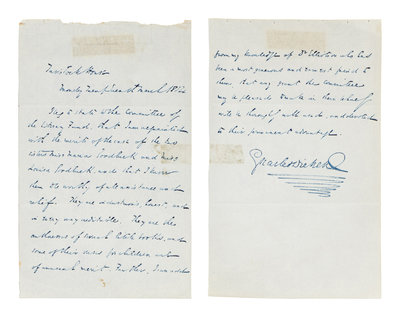 Tavistock House
Monday
I beg to state to the Committee of
the Literary Fund, that I am acquainted
with the merits of the case of the two
sisters Miss and Miss
Louisa and that I know
them to be worthy of assistance and
relief. They are industrious, honest, and
in every way creditable. They are the
authoresses of several little books, and
some of their for children are
of unusual merit. Further, I am able
from my knowledge of Dr Elliotson who has
been a most generous and earnest friend to
them that any grant the Committee
may be pleased to make in their behalf
will be thoroughly well used, and devoted
to their permanent advantage.
Charles Dickens